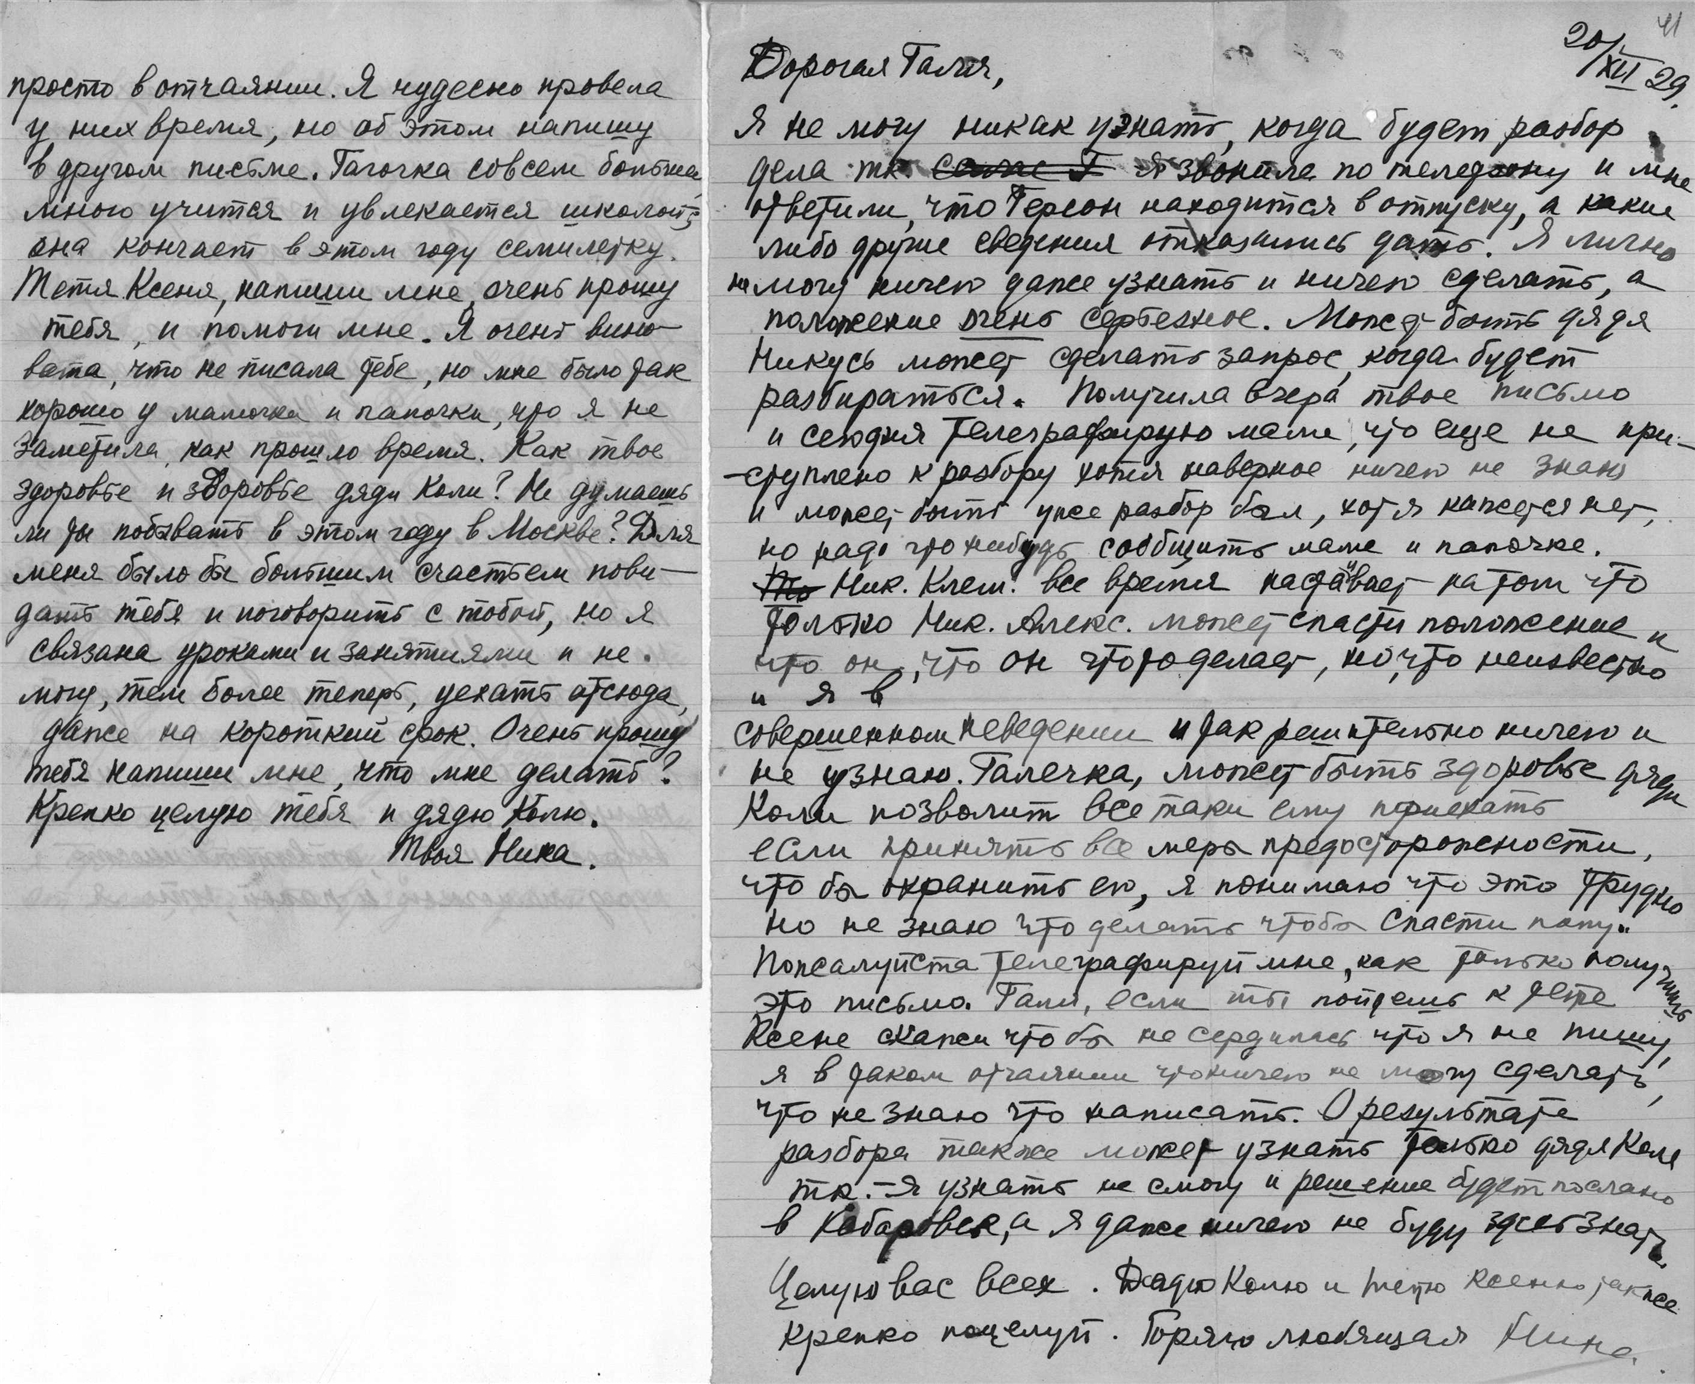 просто в отчаянии. Я чудесно провела
у них время, но об этом напишу
в другом письме. Гагочка совсем большая
много учится и увлекается школой,
она кончает в этом году семилетку.
Тетя Ксеня, напиши мне, очень прошу
тебя, и помоги мне. Я очень вино-
вата, что не писала тебе, но мне было так
хорошо у мамочки и папочки, что я не
заметила, как прошло время. Как твое
здоровье и здоровье дяди Коли? Не думаешь
ли ты побывать в этом году в Москве? Для
меня было бы большим счастьем пови-
дать тебя и поговорить с тобой, но я
связана уроками и занятиями и не
могу, тем более теперь, уехать отсюда,
даже на короткий срок. Очень прошу
тебя напиши мне, что мне делать?
Крепко целую тебя и дядю Колю.
Твоя Нина.
41
20/XII 29.
Дорогая Галя,
Я не могу никак узнать, когда будет разбор
дела тк. я звонила по телефону и мне
ответили, что Герсон находится в отпуску, а какие
либо другие сведения отказались дать. Я лично
не могу ничего даже узнать и ничего сделать, а
положение очень серьезное. Может быть дядя
Никусь может сделать запрос, когда будет
разбираться. Получила вчера твое письмо
и сегодня телеграфирую маме, что еще не при-
-ступлено к разбору хотя наверное ничего не знаю
и может быть уже разбор был, хотя кажется нет,
но надо что нибудь сообщить маме и папочке.
Ник. Клем. все время настаивает на том что
только Ник. Алекс. может спасти положение и
что он, что он что то делает, но, что неизвестно
и я в
совершенном неведении и так решительно ничего и
не узнаю. Галечка, может быть здоровье дяди
Коли позволит все таки ему приехать
если принять все меры предосторожности,
что бы охранить его, я понимаю что это трудно
но не знаю что делать чтобы спасти папу.
Пожалуйста телеграфируй мне, как только получишь
это письмо. Галя, если ты пойдешь к тете
Ксене скажи что бы не сердилась что я не пишу,
я в таком отчаянии что ничего не могу сделать,
что не знаю что написать. О результате
разбора также может узнать только дядя Коля
тк. - я узнать не смогу и решение будет послано
в Хабаровск, а я даже ничего не буду здесь знать.
Целую вас всех. Дядю Колю и тетю Ксеню также
крепко поцелуй. Горячо любящая Нина.